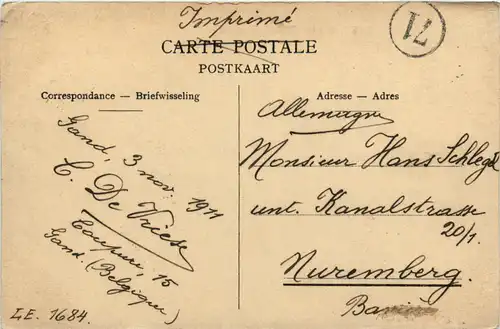 Imprimé
71
CARTE POSTALE
POSTKAART
Correspondance — Briefwisseling
Gand, 3 nov. 1911
C. De Vriese
Coupure, 15
Gand. (Belgique)
I.E. 1684.
Adresse — Adres
Allemagne
Monsieur Hans Schlegel
unt. Kanalstrasse
20/1.
Nuremberg.